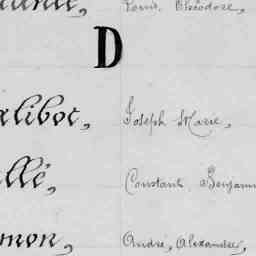 Louis, Théodore,
D
alibot, Joseph Marie,
llé, Constant, Benjamin
mon, André, Alexandre,